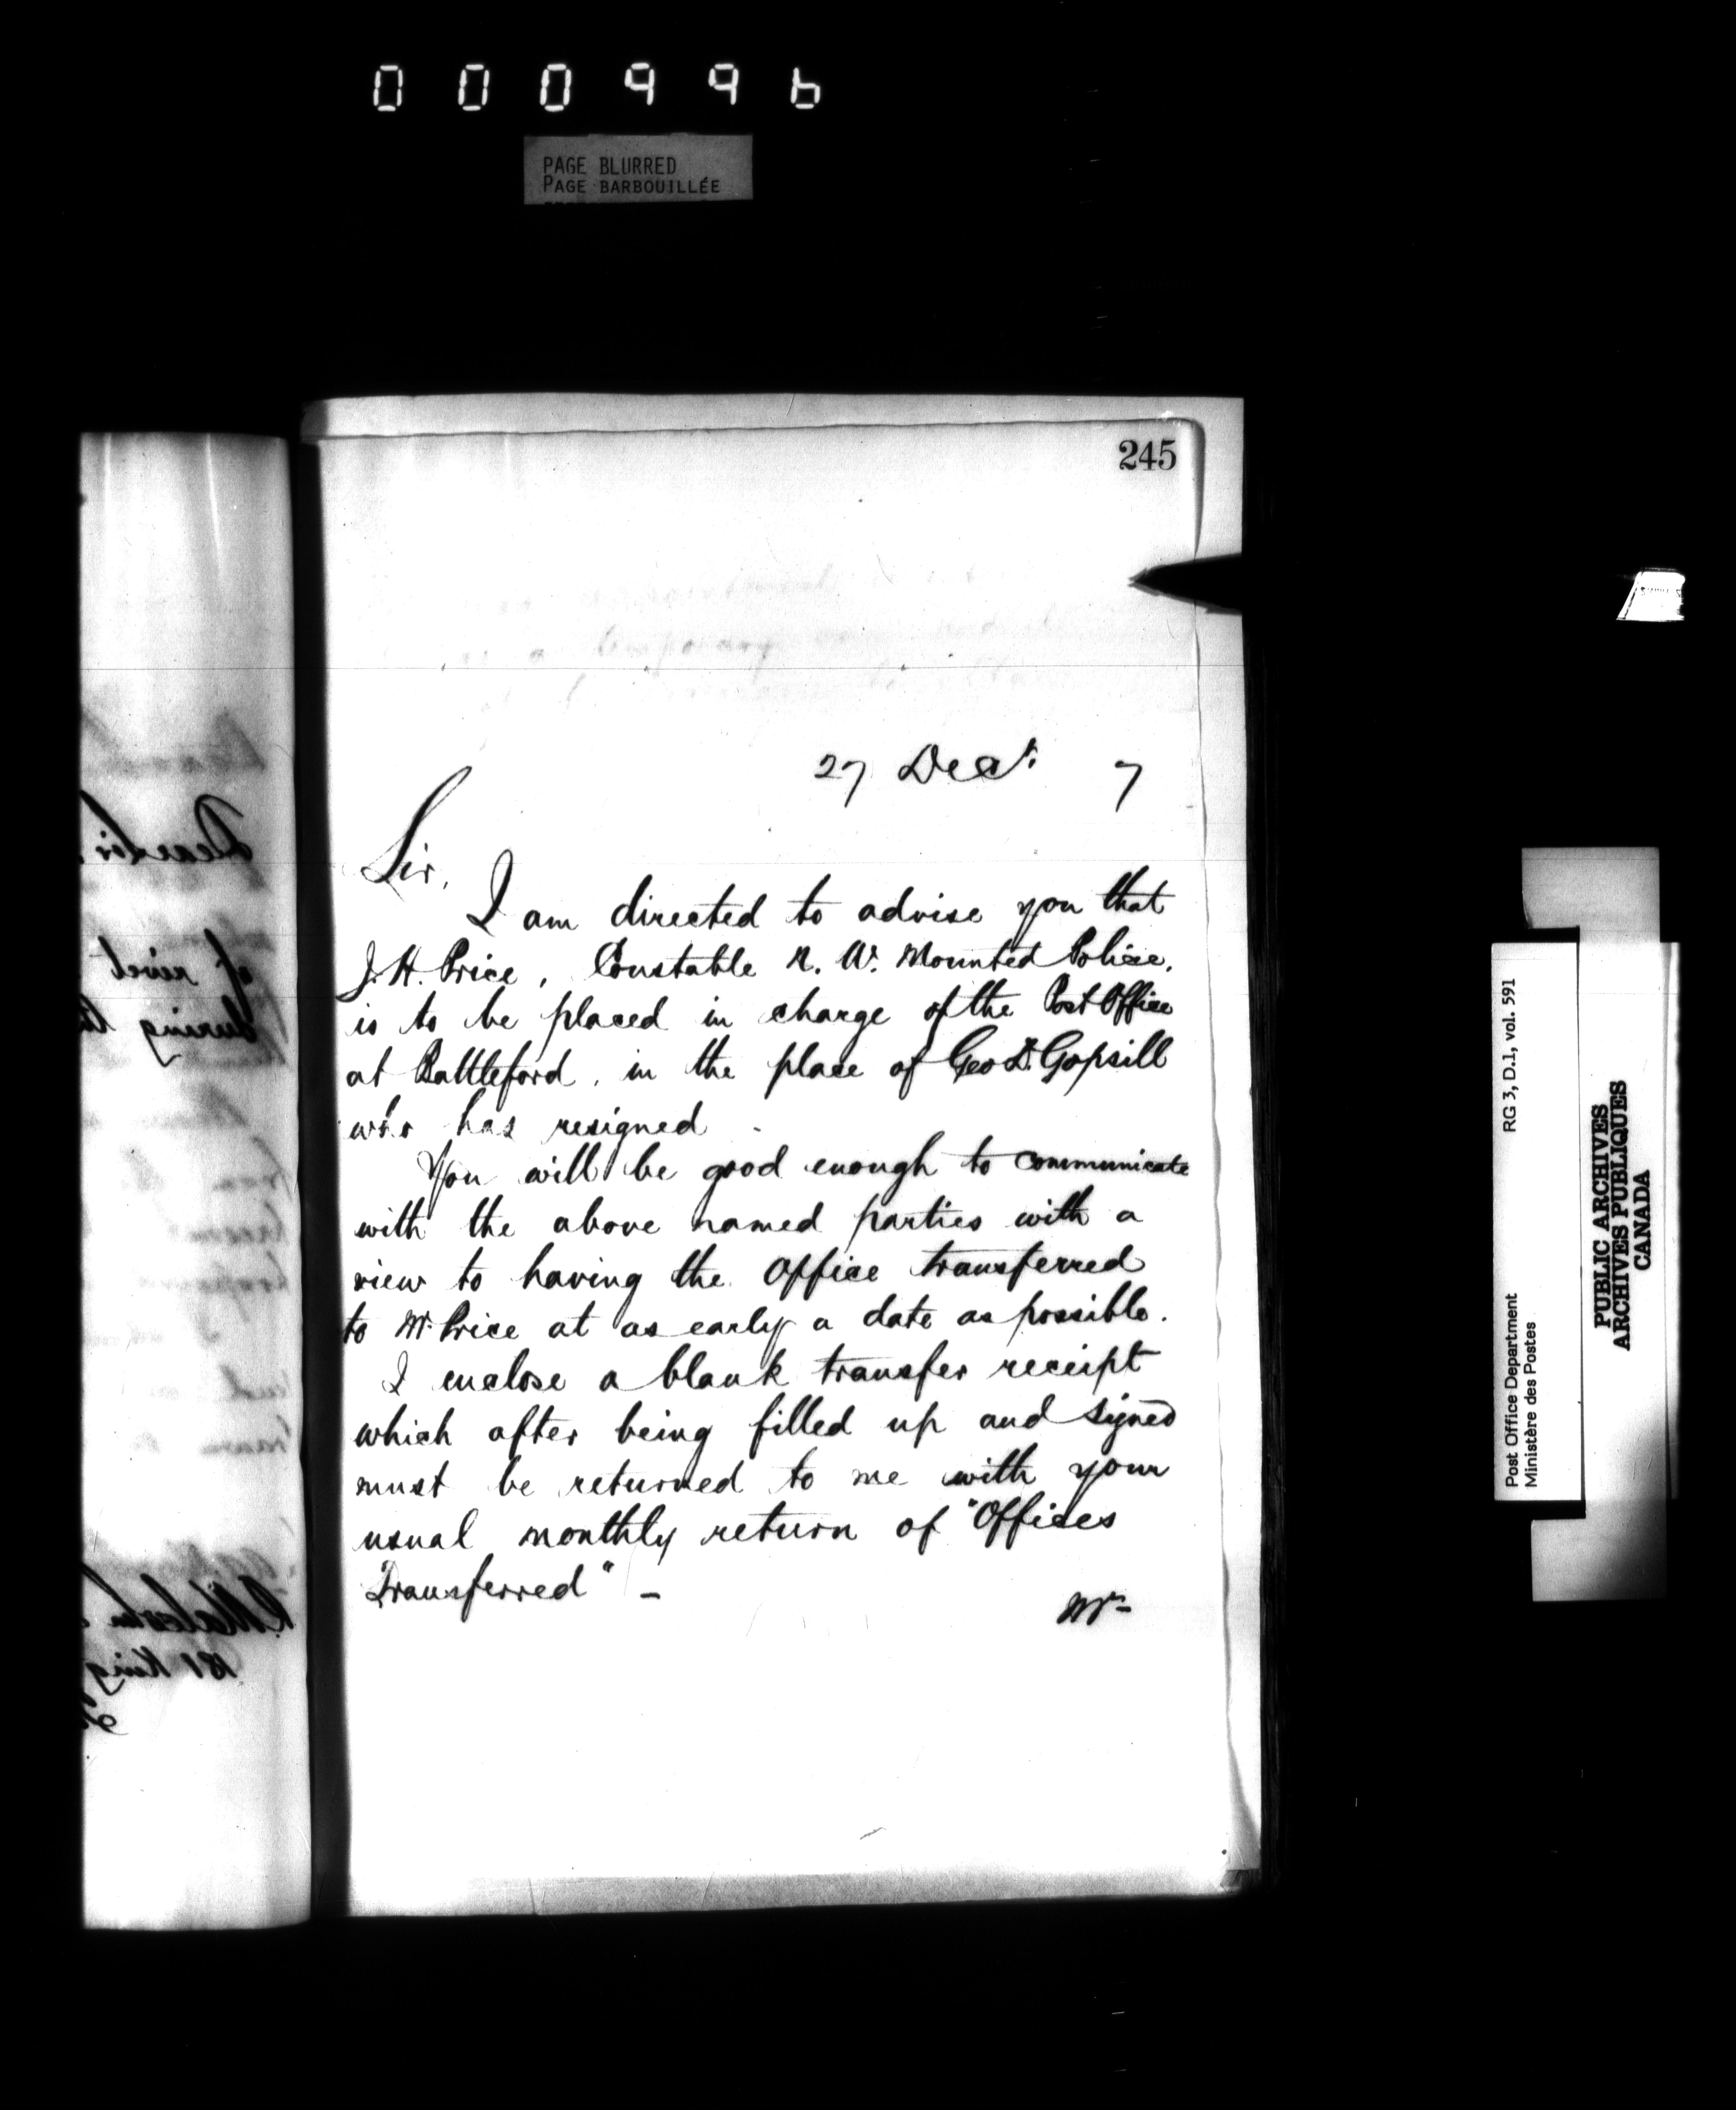 000996
PAGE BLURRED
PAGE BARBOUILLÉE
245
27 Decr. 7
Sir,
I am directed to advise you that
J. H. Price, Constable N. W. Mounted Police,
is to be placed in charge of the Post Office
at Battleford, in the place of Geo D. Gopsill
who has resigned -
You will be good enough to communicate
with the above named parties with a
view to having the Office transferred
to Mr. Price at as early a date as possible.
I enclose a blank transfer receipt
which after being filled up and signed
must be returned to me with your
usual monthly return of "Offices
Transferred" -
Mr-
Dear Sir,
during
181 King
RG 3, D.1, vol. 591
Post Office Department
Ministère des Postes
PUBLIC ARCHIVES
ARCHIVES PUBLIQUES
CANADA